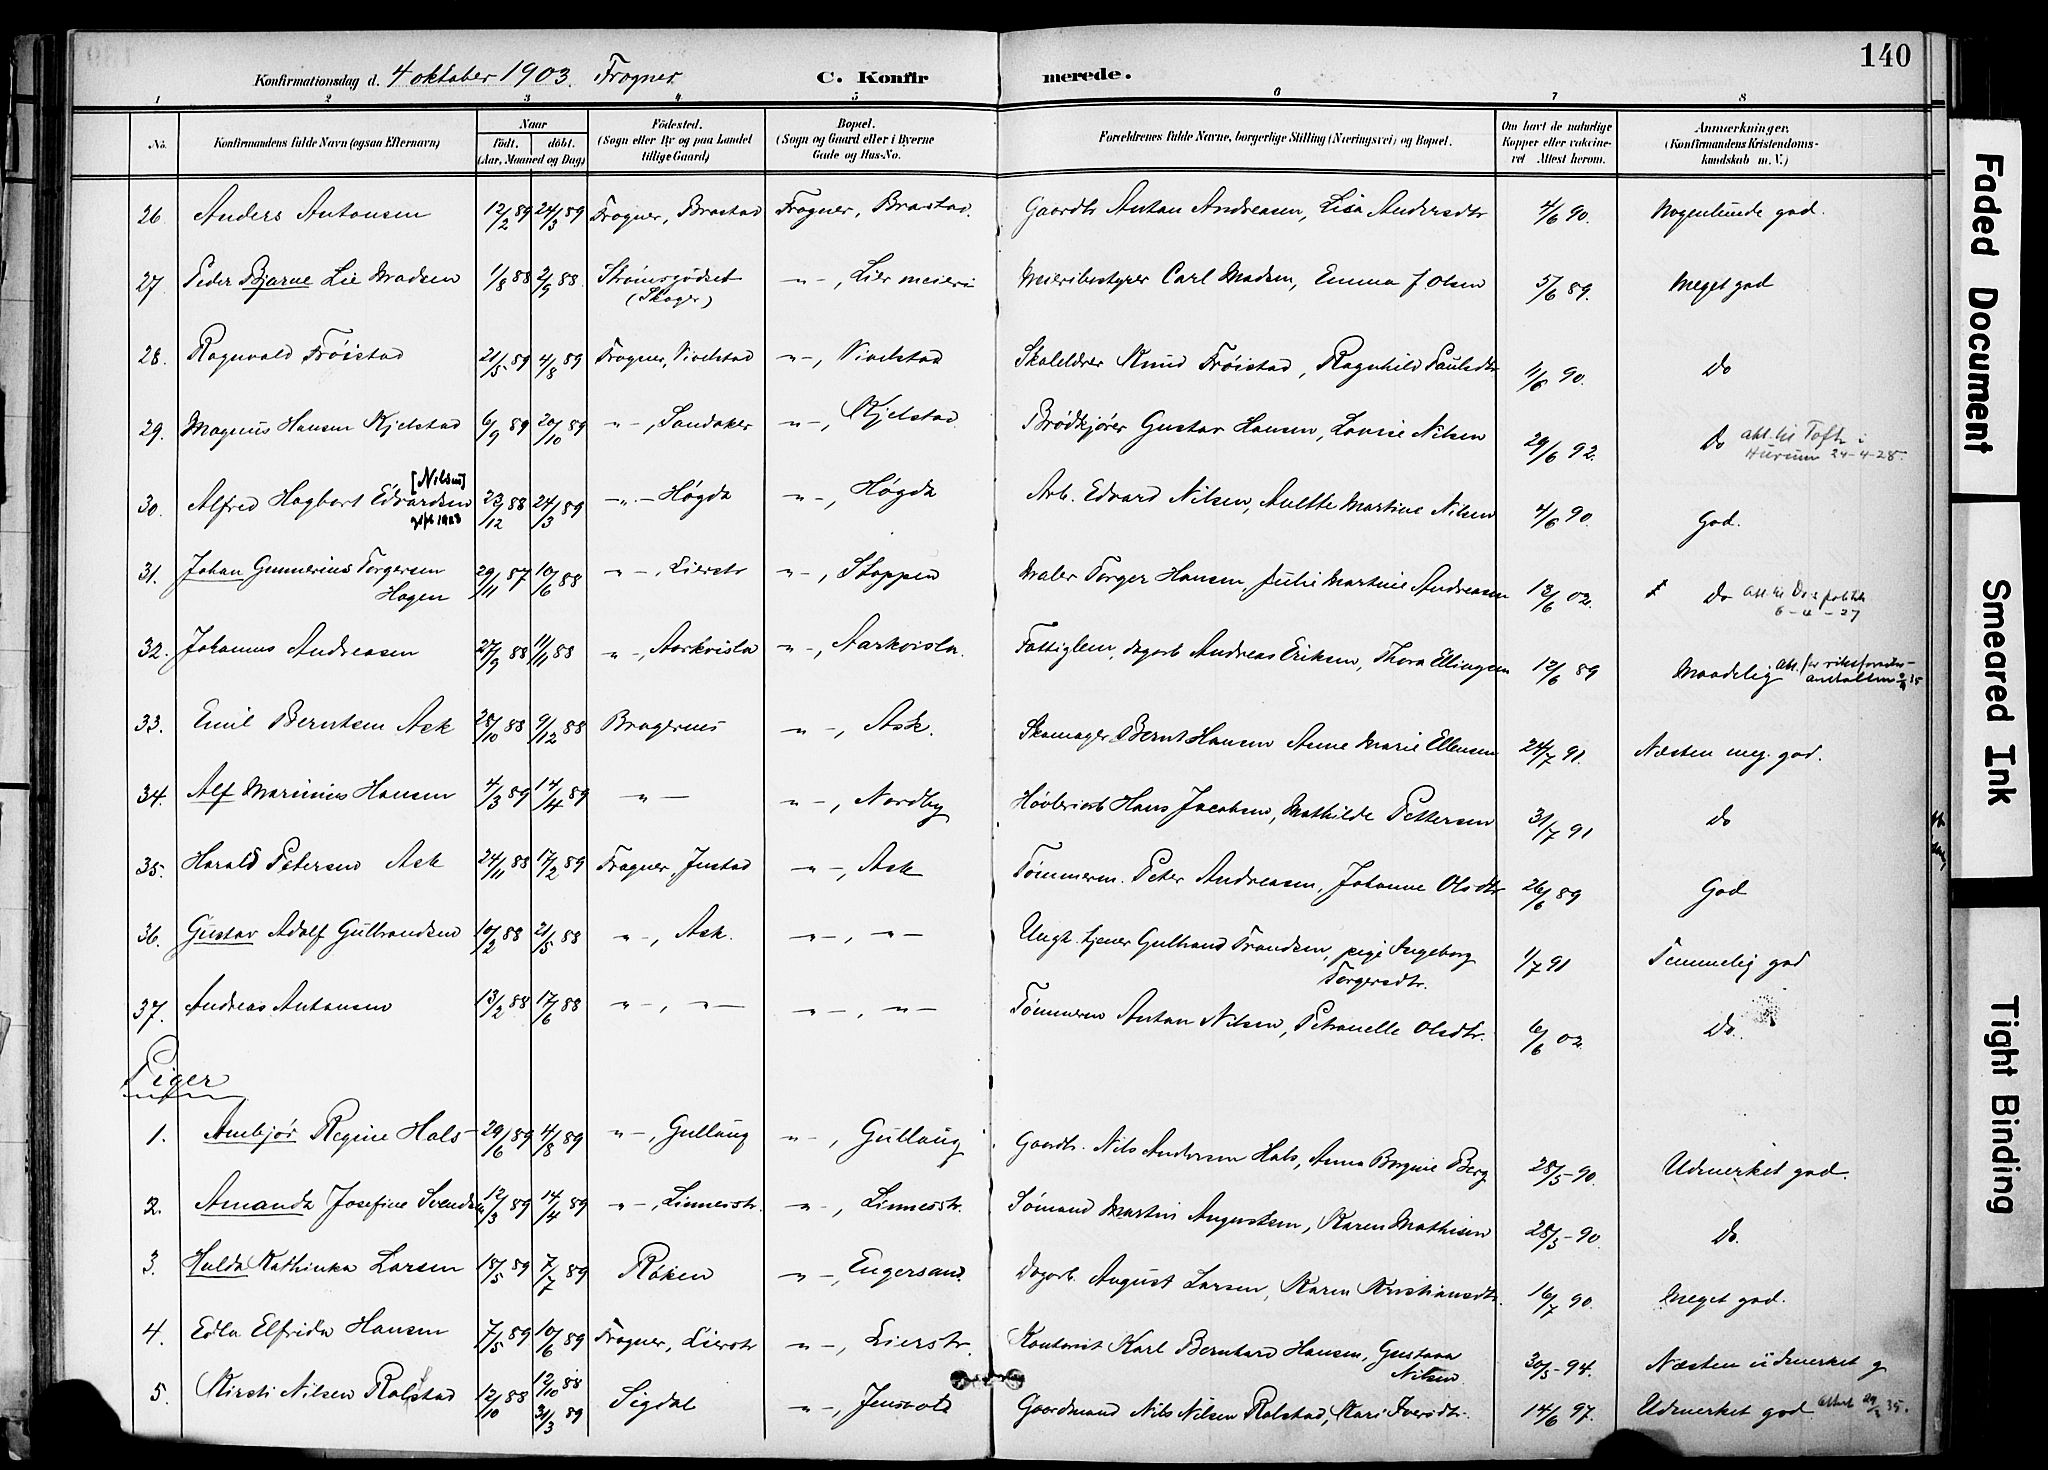 140
Konfirmationsdag d. 4 oktober 1903. Frogner. C. Konfirmerede.
1 2 3 4 5 6 7 8
No. Konfirmandens fulde Navn (ogsaa Efternavn) Naar født. døbt. (Aar, Maaned og Dag) Fødested. (Sogn eller By og paa Landet tillige Gaard) Bopæl. (Sogn og Gaard eller i Byerne Gade og Hus-No. Forældrenes fulde Navne, borgerlige Stilling (Næringsvei) og Bopæl. Om havt de naturlige Kopper eller vaccineret Attest herom. Anmærkninger. (Konfirmandens Kristendomskundskab m. V.)
26. Anders Antonsen 12/2 89 24/3 89 Frogner, Brastad Frogner, Brastad. Gaardbr Anton Andreasen, Lisa Andersdtr 4/6 90. Nogenlunde god.
27. Peder Bjarne Lie Madsen 1/8 88 2/9 88 Strømsgodset (Skoger) -"-, Lier meieri Meieribestyrer Carl Madsen, Emma J. Olsen 5/6 89. Meget god
28. Ragnvald Frøistad 21/5 89 4/8 89 Frogner, Vivelstad -"-, Vivelstad Skoleldrer Knud Frøistad, Ragnhild Paulsdtr 4/6 90. Do
29. Magnus Hansen Kjelstad 6/9 89 20/10 89 -"-, Sandaker -"-, Kjelstad. Brødkjører Gustav Hansen, Lovise Nilsen 29/6 92. Do att. til Tofte i Hurum 24-4-28.
30. Alfred Hagbart Edvardsen [Nilsen] 23/12 88 24/3 89 -"- Høgda -"-, Høgda Arb. Edvard Nilsen, Anette Martine Nilsen 4/6 90. God.
31. Johan Gunnerius Torgersen Hagen 29/11 87 10/6 88 -"-, Lierstr -"-, Stoppen Maler Torger Hansen, Julie Martine Andreasen 12/6 02. Do 6-4-27
32. Johannes Andreasen 27/9 88 11/11 88 -"-, Aarkvisla -"-, Aarkvisla. Fattiglem, dagarb Andreas Eriksen, Thora Ellingsen 12/6 89 Maadelig
33. Emil Berntsen Ask 28/10 88 9/12 88 Bragernes -"-, Ask. Skomager Bernt Hansen Anne Marie Ellensen 24/7 91. Næsten meg. god.
34. Alf Marinius Hansen 4/3 89 14/4 89 -"- -"-, Nordby Høvleriarb Hans Jacobsen, Mathilde Pettersen 31/7 91 Do
35. Harald Petersen Ask 24/11 88 17/2 89 Frogner, Justad -"-, Ask Tømmerm. Peter Andreasen, Johanne Olsdtr 26/6 89 God
36. Gustav Adolf Gulbrandsen 10/2 88 21/5 88 -"-, Ask. -"-, -"- Ungk. tjener Gulbrand Frandsen, pige Ingeborg Torgersdtr. 1/7 91 Temmelig god
37. Andreas Antonsen 13/2 88 17/6 88 -"-, -"- -"-, -"- Tømmerm Anton Nilsen, Petronelle Olsdtr. 6/6 02. Do.
Piger
1. Ambjør Regine Hals 29/6 89 4/8 89 -"-, Gullaug -"-, Gullaug Gaardbr. Nils Andersen Hals, Anna Bergine Berg 28/5-90. Udmerket god.
2. Amanda Josefine Svendsen 12/3 89 14/4 89 -"-, Linnesstr. -"-, Linnesstr. Sømand Martin Augustsen, Karen Mathisen 28/5-90. Do.
3. Hulda Kathinka Larsen 18/5 89 7/7 89 Røken -"-, Engersand. Dagarb. August Larsen, Karen Kristiansdtr. 16/7 90. Meget god.
4. Edla Elfrida Hansen 7/5 89 10/6 89 Frogner, Lierstr -"-, Lierstr. Kontorist Karl Bernhard Hansen, Gustava Nilsen 30/5-94. Næsten udmerket g
5. Kirsti Nilsen Rolstad 12/10 88 12/10 88 31/3 89 Sigdal -"-, Jensvold Gaardmand Nils Nilsen Rolstad, Kari Iversdtr. 14/6 97. Udmerket god
Faded Document
Smeared Ink
Tight Binding